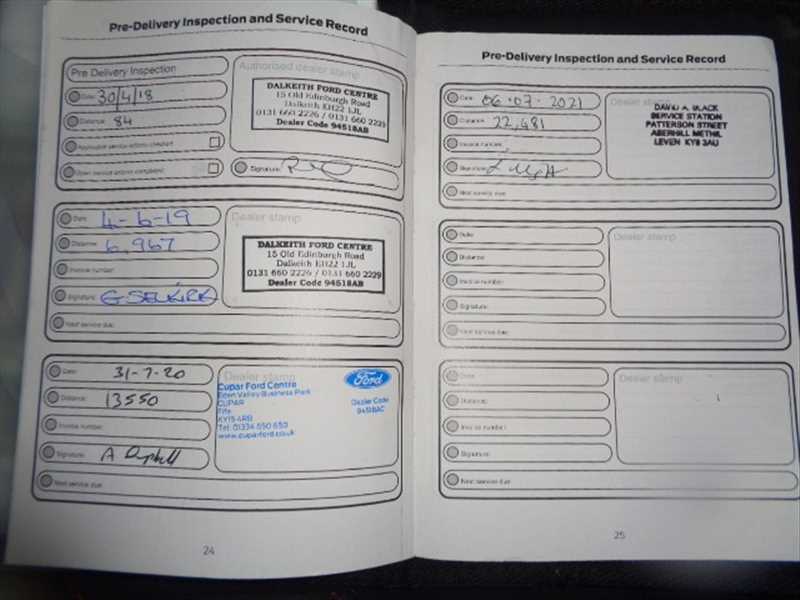 Pre-Delivery Inspection and Service Record
Pre Delivery Inspection
Date: 30/4/18
Distance: 84
Applicable service actions checked
Open service actions completed
Authorised dealer stamp
DALKEITH FORD CENTRE
15 Old Edinburgh Road
Dalkeith EH22 1JL
0131 660 2226 / 0131 660 2229
Dealer Code 94518AB
Signature:
Date: 4-6-19
Distance: 6,967
Invoice number:
Signature: G SELKIRK
Next service due:
Dealer stamp
DALKEITH FORD CENTRE
15 Old Edinburgh Road
Dalkeith EH22 1JL
0131 660 2226 / 0131 660 2229
Dealer Code 94518AB
Date: 31-7-20
Distance: 13550
Invoice number:
Signature: A
Next service due:
Dealer stamp
Cupar Ford Centre
Eden Valley Business Park
CUPAR
Fife
KY15 4RB
Tel: 01334 650 650
www.cuparford.co.uk
Ford
Dealer Code
94518AC
24
Pre-Delivery Inspection and Service Record
Date: 06.07.2021
Distance: 22,481
Invoice number:
Signature:
Next service due:
Dealer stamp
DAVID A. BLACK
SERVICE STATION
PATTERSON STREET
ABERHILL METHIL
LEVEN KY8 3AU
Date:
Distance:
Invoice number:
Signature:
Next service due:
Dealer stamp
Date:
Distance:
Invoice number:
Signature:
Next service due:
Dealer stamp
25